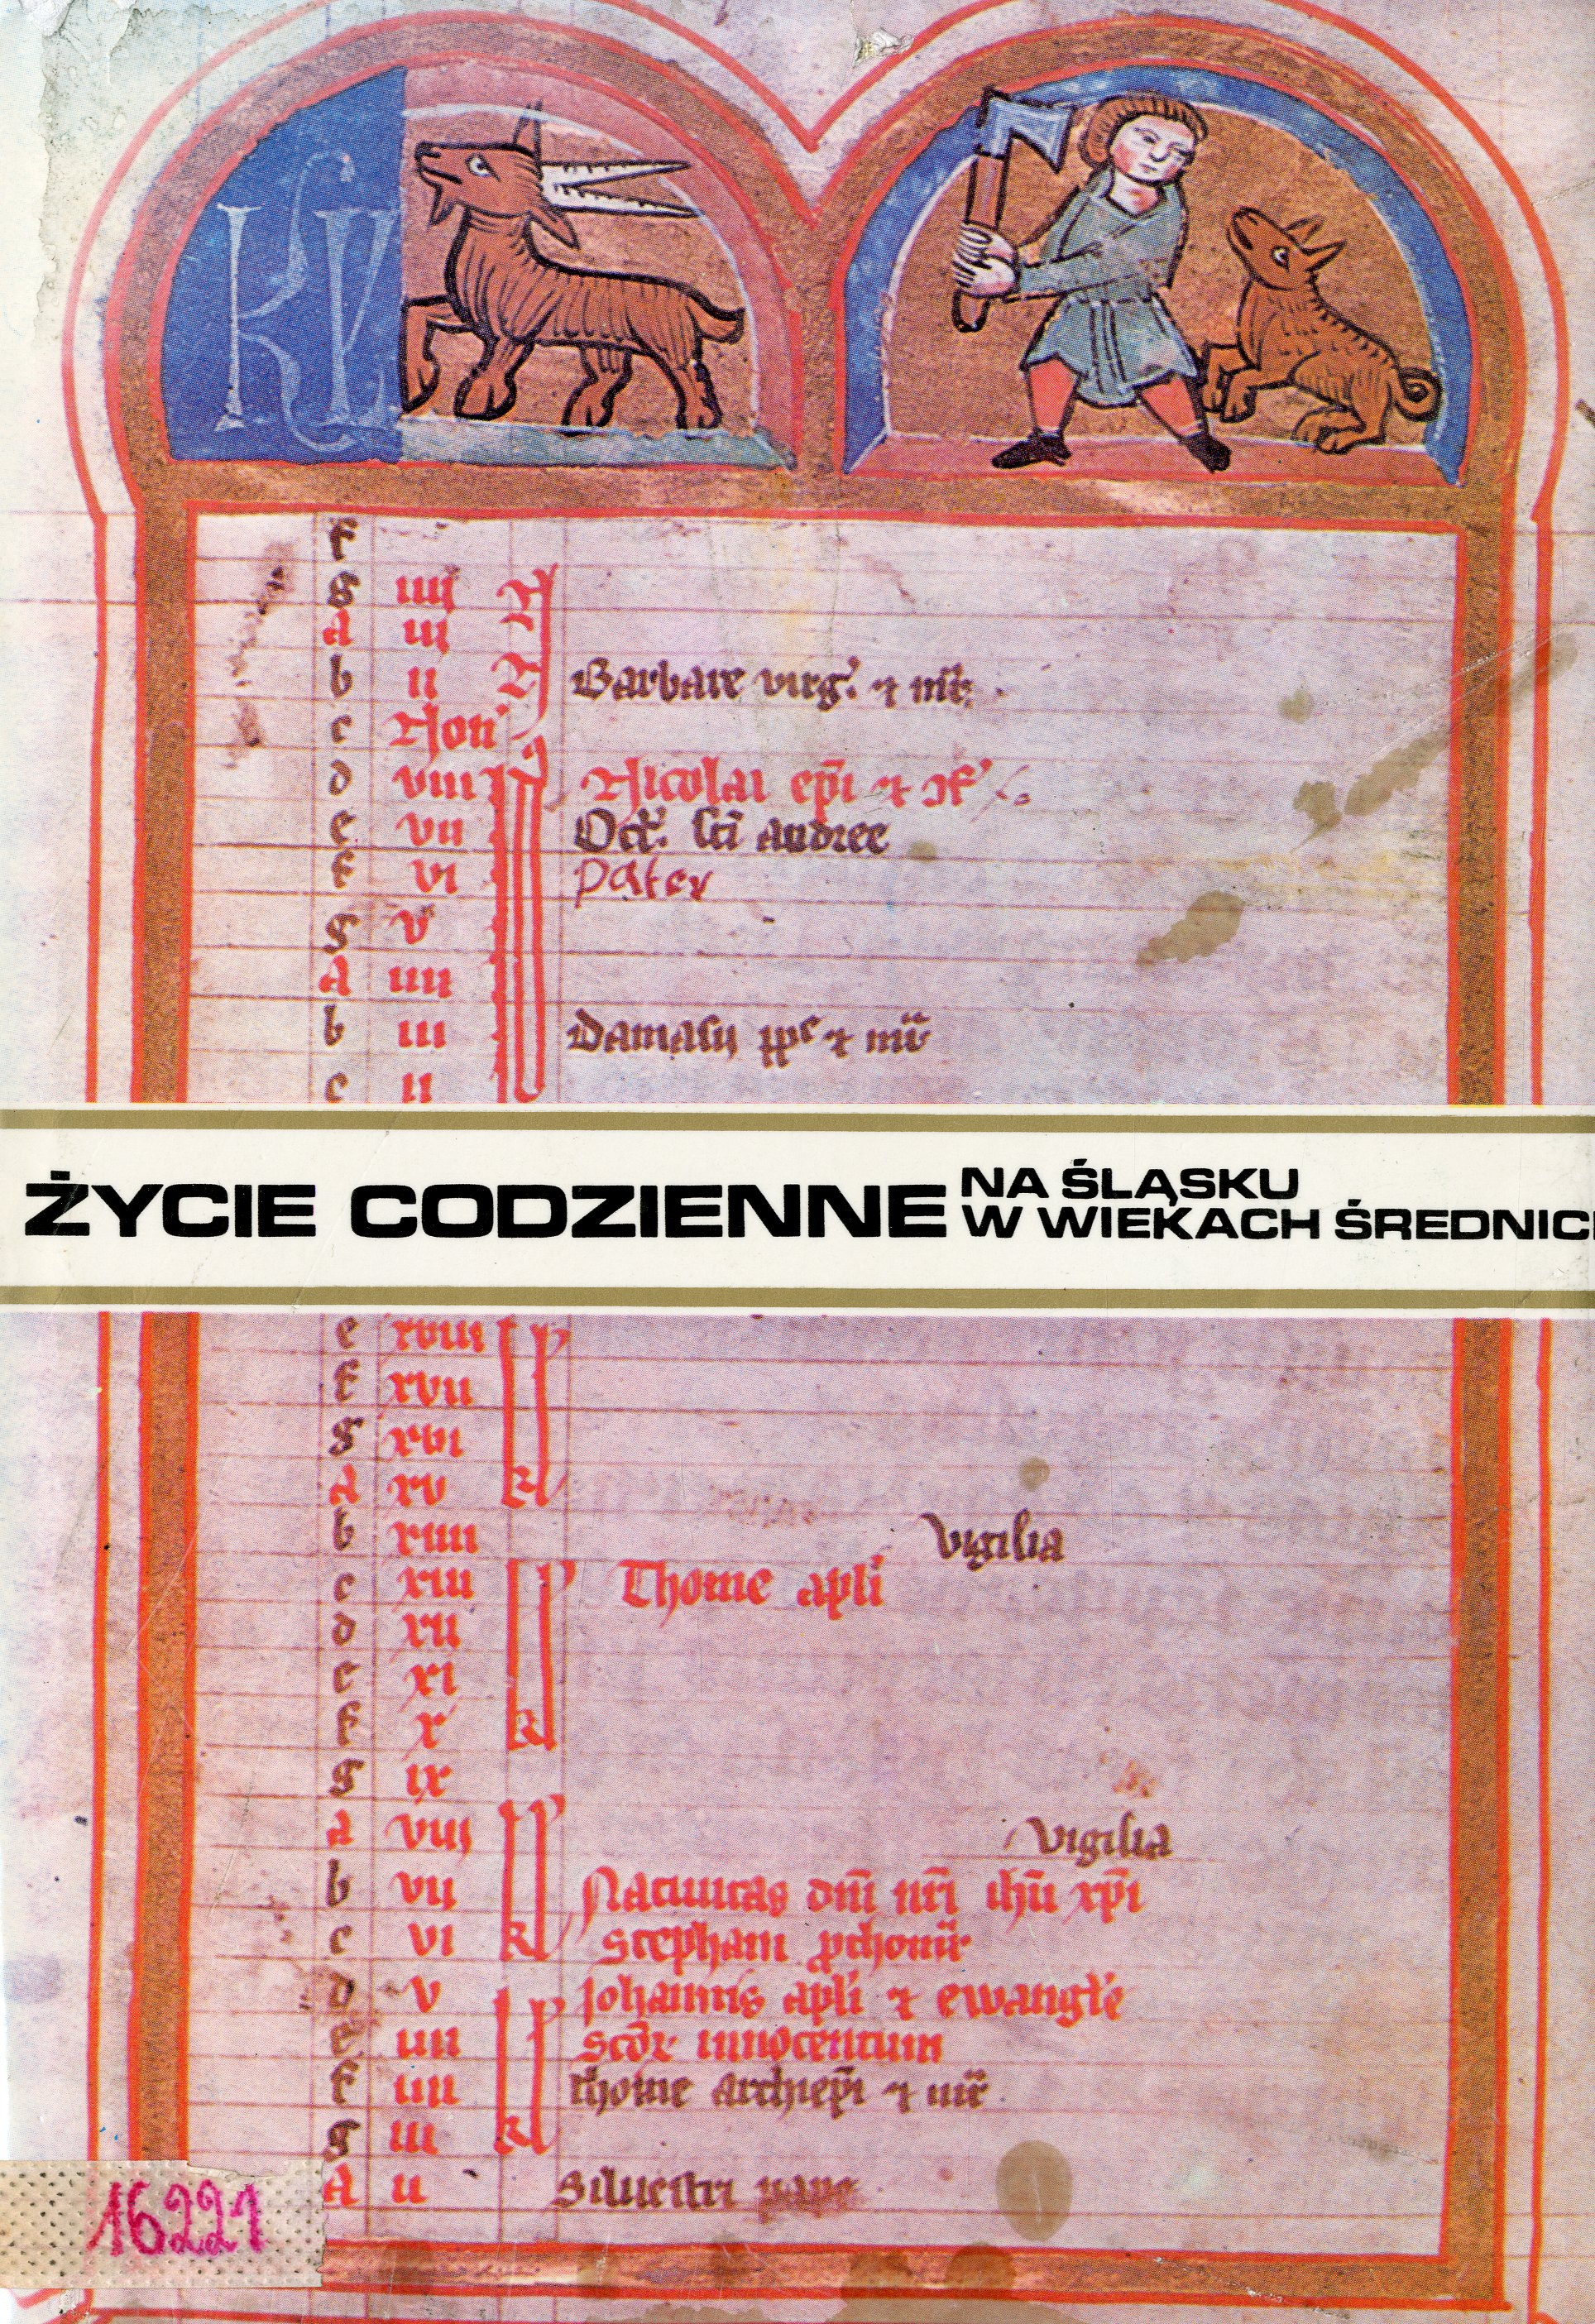 KL
f
g iiij N
A iij
b ii N Barbare virg. et mr.
c Non
d viii Nicolai epi et 9f
e vii Oct. sci andree
f vi pater
g v
A iiii
b iii Damasy ppe et mr
c ii
ŻYCIE CODZIENNE NA ŚLĄSKU
W WIEKACH ŚREDNIC
e xviii
f xvii
g xvi
A xv kl
b xiiii vigilia
c xiii Thome apli
d xii
e xi
f x kl
g ix
A viii vigilia
b vii Natiuitas dni nri ihu xpi
c vi kl Stephani prthomr
d v Johannis apli et ewangle
e iiii scor innocentum
f iiii thome archiepi et mr
g iii kl
A ii Siluestri pape
16221